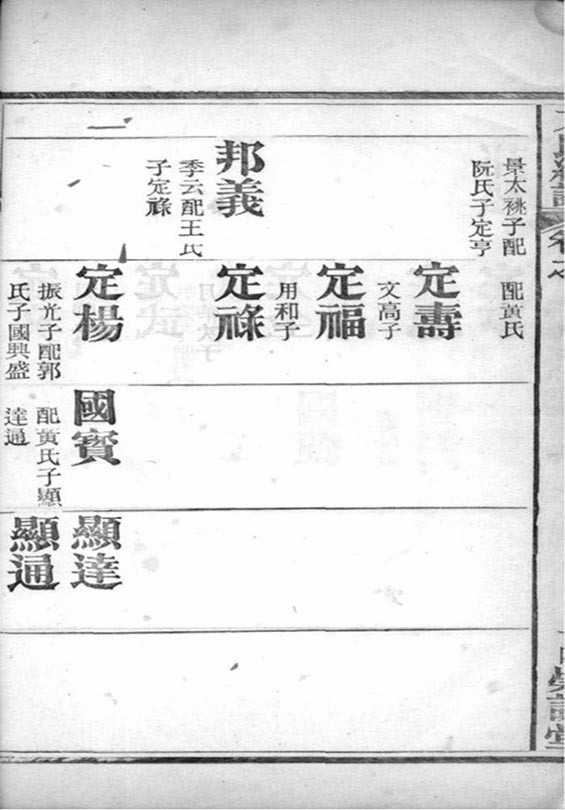 景太祧子配
阮氏子定亨
邦義
季云配王氏
子定祿
配黃氏
定壽
文高子
定福
用和子
定祿
定楊
振光子配郭
氏子國興盛
國賓
配黃氏子顯
達通
顯達
顯通